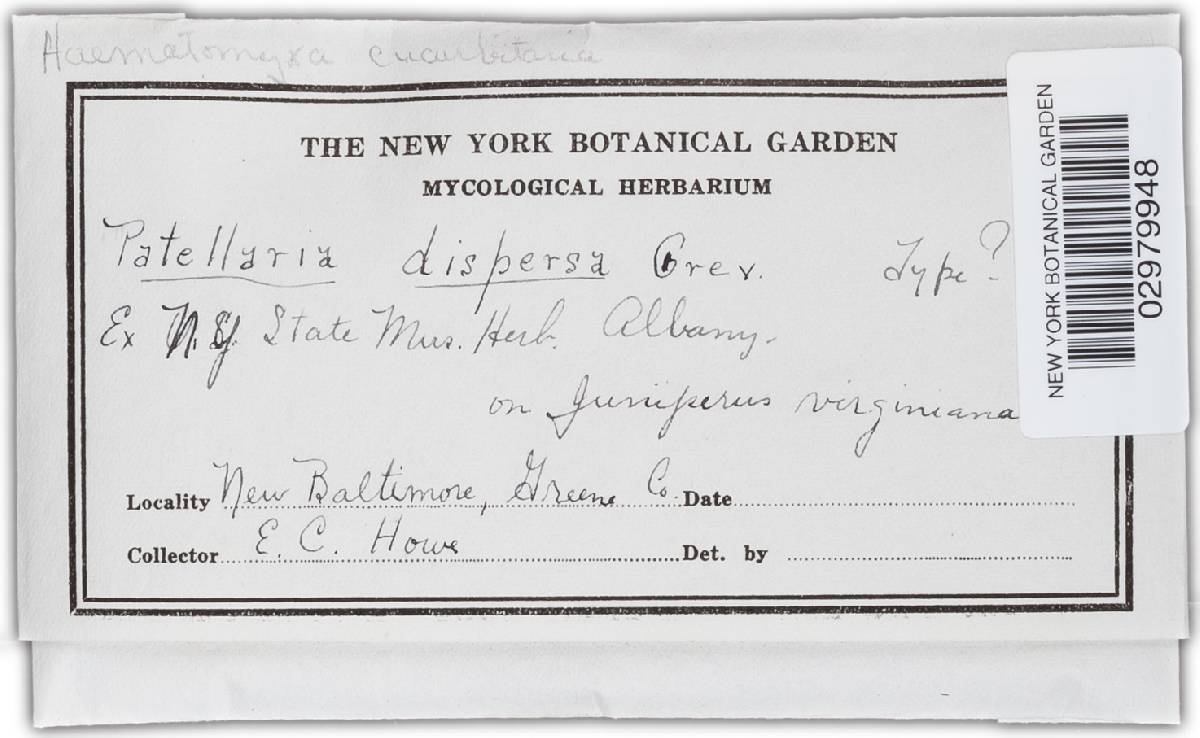 Haematomyxa cucurbitaria
THE NEW YORK BOTANICAL GARDEN
MYCOLOGICAL HERBARIUM
Patellaria dispersa Grev. Type?
Ex N.Y. State Mus. Herb. Albany.
on Juniperus virginiana
Locality New Baltimore, Greene Co. Date
Collector E. C. Howe Det. by
NEW YORK BOTANICAL GARDEN
02979948